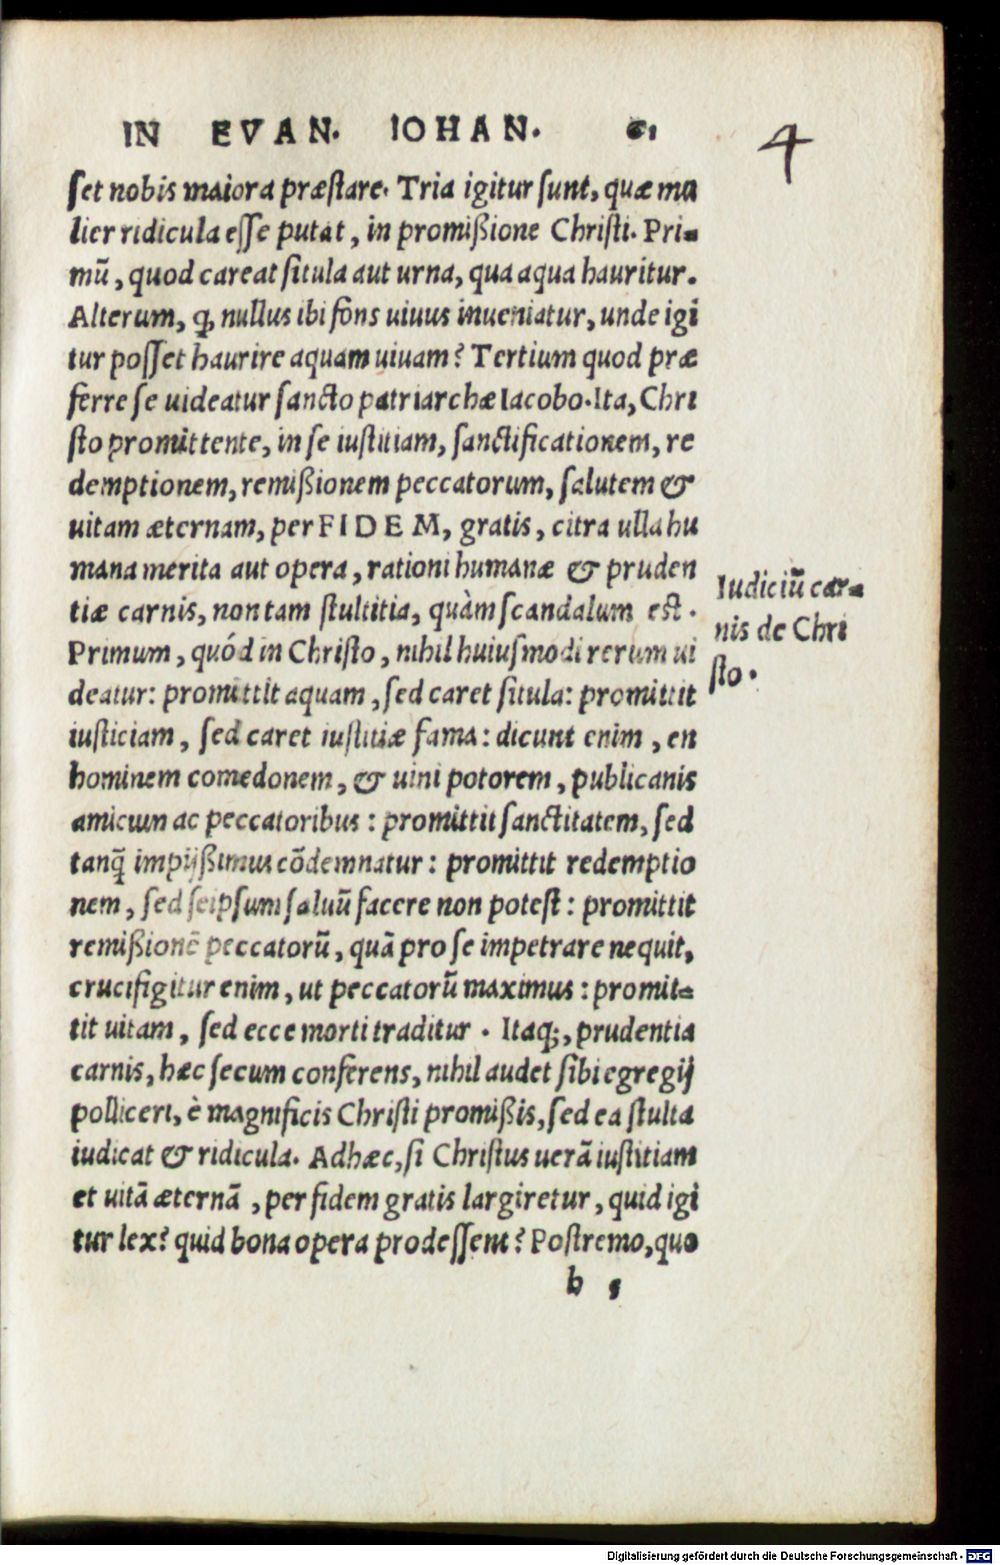 IN EVAN. IOHAN. 61
4
set nobis maiora præstare. Tria igitur sunt, quæ mu
lier ridicula esse putat, in promißione Christi. Pri-
mū, quod careat situla aut urna, qua aqua hauritur.
Alterum, q, nullus ibi fons uiuus inueniatur, unde igi
tur posset haurire aquam uiuam? Tertium quod præ
ferre se uideatur sancto patriarchæ Iacobo. Ita, Chri
sto promittente, in se iustitiam, sanctificationem, re
demptionem, remißionem peccatorum, salutem &
uitam æternam, per FIDEM, gratis, citra ulla hu
mana merita aut opera, rationi humanæ & pruden
tiæ carnis, non tam stultitia, quàm scandalum est.
Iudiciū car-
nis de Chri
sto.
Primum, quód in Christo, nihil huiusmodi rerum ui
deatur: promittit aquam, sed caret situla: promittit
iusticiam, sed caret iustitiæ fama: dicunt enim, en
hominem comedonem, & uini potorem, publicanis
amicum ac peccatoribus: promittit sanctitatem, sed
tanq̄ impijßimus cōdemnatur: promittit redemptio
nem, sed seipsum saluū facere non potest: promittit
remißionē peccatorū, quā pro se impetrare nequit,
crucifigitur enim, ut peccatorū maximus: promit-
tit uitam, sed ecce morti traditur. Itaq;, prudentia
carnis, hæc secum conferens, nihil audet sibi egregij
polliceri, è magnificis Christi promißis, sed ea stulta
iudicat & ridicula. Adhæc, si Christus uerā iustitiam
et uitā æternā, per fidem gratis largiretur, quid igi
tur lex? quid bona opera prodessent? Postremo, quo
b 5
Digitalisierung gefördert durch die Deutsche Forschungsgemeinschaft - DFG